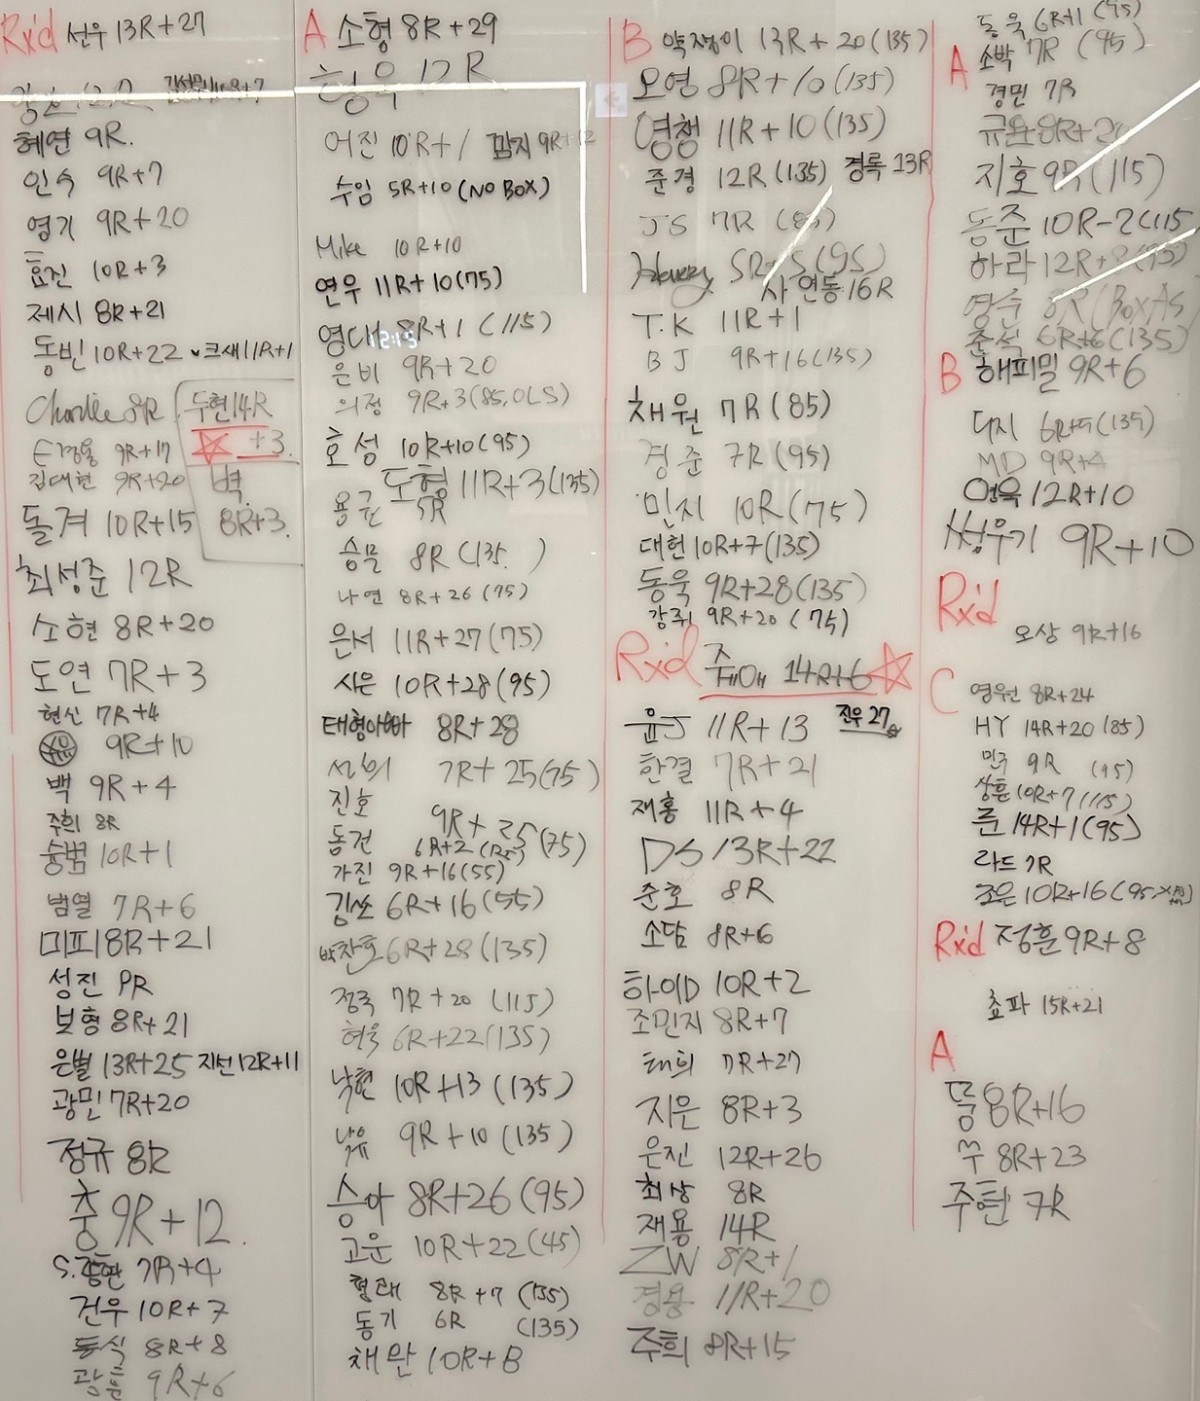 Rx'd 선우 13R+27
혜연 9R.
인숙 9R+7
영기 9R+20
효진 10R+3
제시 8R+21
동빈 10R+22 크새 11R+1
Charlie 8R
두현 14R
+3.
E경용 9R+17
김대현 9R+20
벽
8R+3.
돌겨 10R+15
최성준 12R
소현 8R+20
도연 7R+3
현신 7R+4
9R+10
백 9R+4
주희 8R
승범 10R+1
범열 7R+6
미피 18R+21
성진 PR
보형 8R+21
은별 13R+25 지선 12R+11
광민 7R+20
정규 8R
충 9R+12.
S.종환 7R+4
건우 10R+7
동식 8R+8
광훈 9R+6
A 소형 8R+29
형욱 12R
어진 10R+1 깜지 9R+12
수임 5R+10 (NO BOX)
Mike 10R+10
연우 11R+10 (75)
영대 8R+1 (115)
은비 9R+20
의정 9R+3 (85, OLS)
호성 10R+10 (95)
도형 11R+3 (135)
용규 5R
승물 8R (135. )
나연 8R+26 (75)
은서 11R+27 (75)
시은 10R+28 (95)
태형아빠 8R+28
선희 7R+25 (75)
진호 9R+25 (75)
동건 6R+2
가진 9R+16 (55)
김쏘 6R+16 (55)
박찬호 6R+28 (135)
정국 7R+20 (115)
혀욱 6R+22 (135)
낙현 10R+13 (135)
낙유 9R+10 (135)
승아 8R+26 (95)
고운 10R+22 (45)
형래 8R+7 (135)
동기 6R (135)
채완 10R+B
B 약쟁이 13R+20 (135)
오영 8R+10 (135)
영챙 11R+10 (135)
준경 12R (135) 경록 13R
JS 7R (85)
Henry 5R+5 (95)
사연동 16R
T.K 11R+1
BJ 9R+16 (135)
채원 7R (85)
경준 7R (95)
민지 10R (75)
대헌 10R+7 (135)
동욱 9R+28 (135)
강쥐 9R+20 (75)
Rx'd 쥬에에 14R+6
윤J 11R+13 진우 27
한결 7R+21
재홍 11R+4
DS 13R+22
준호 8R
소담 8R+6
하이D 10R+2
조민지 8R+7
태희 7R+27
지은 8R+3
은진 12R+26
최상 8R
재용 14R
ZW 8R+1
경용 11R+20
주희 8R+15
동욱 6R+1 (95)
A 소박 7R (95)
경민 7R
지호 9R (115)
동준 10R-2 (115
하라 12R+8
영수 8R (Box As
준석 6R+6 (135)
B 해피밀 9R+6
두지 6R+9 (135)
MD 9R+4
영욱 12R+10
썽우기 9R+10
Rx'd
오상 9R+16
C 영원 8R+24
HY 14R+20 (85)
민주 9R (95)
상훈 10R+7 (115)
준 14R+1 (95)
라드 7R
조은 10R+16
Rx'd 정훈 9R+8
쵸파 15R+21
A
뚱 8R+16
쭈 8R+23
주현 7R